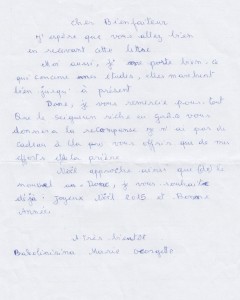 Cher Bienfaiteur
J'espère que vous allez bien
en recevant cette lettre
Moi aussi, je me porte bien. a
qui concerne mes études, elles marchent
bien jusqu'à présent
Donc, je vous remercie pour tout
Que le Seigneur riche en grâce vous
donnera la recompense. je n'ai pas de
cadeau à vous offrir que de mes
efforts et la prière
Noël approche ainsi que
Donc, je vous souhaite
déjà : Joyeux Noël 2015 et Bonne
Année.
A très bientôt
Marie